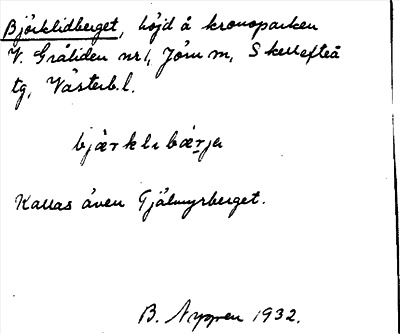 Björklidberget, höjd å kronoparken
V. Gråliden nr 1, Jörn m, Skellefteå
tg, Västerb. l.
bjärklibärje
Kallas även Gjälmyrberget.
B. Nyppen 1932.